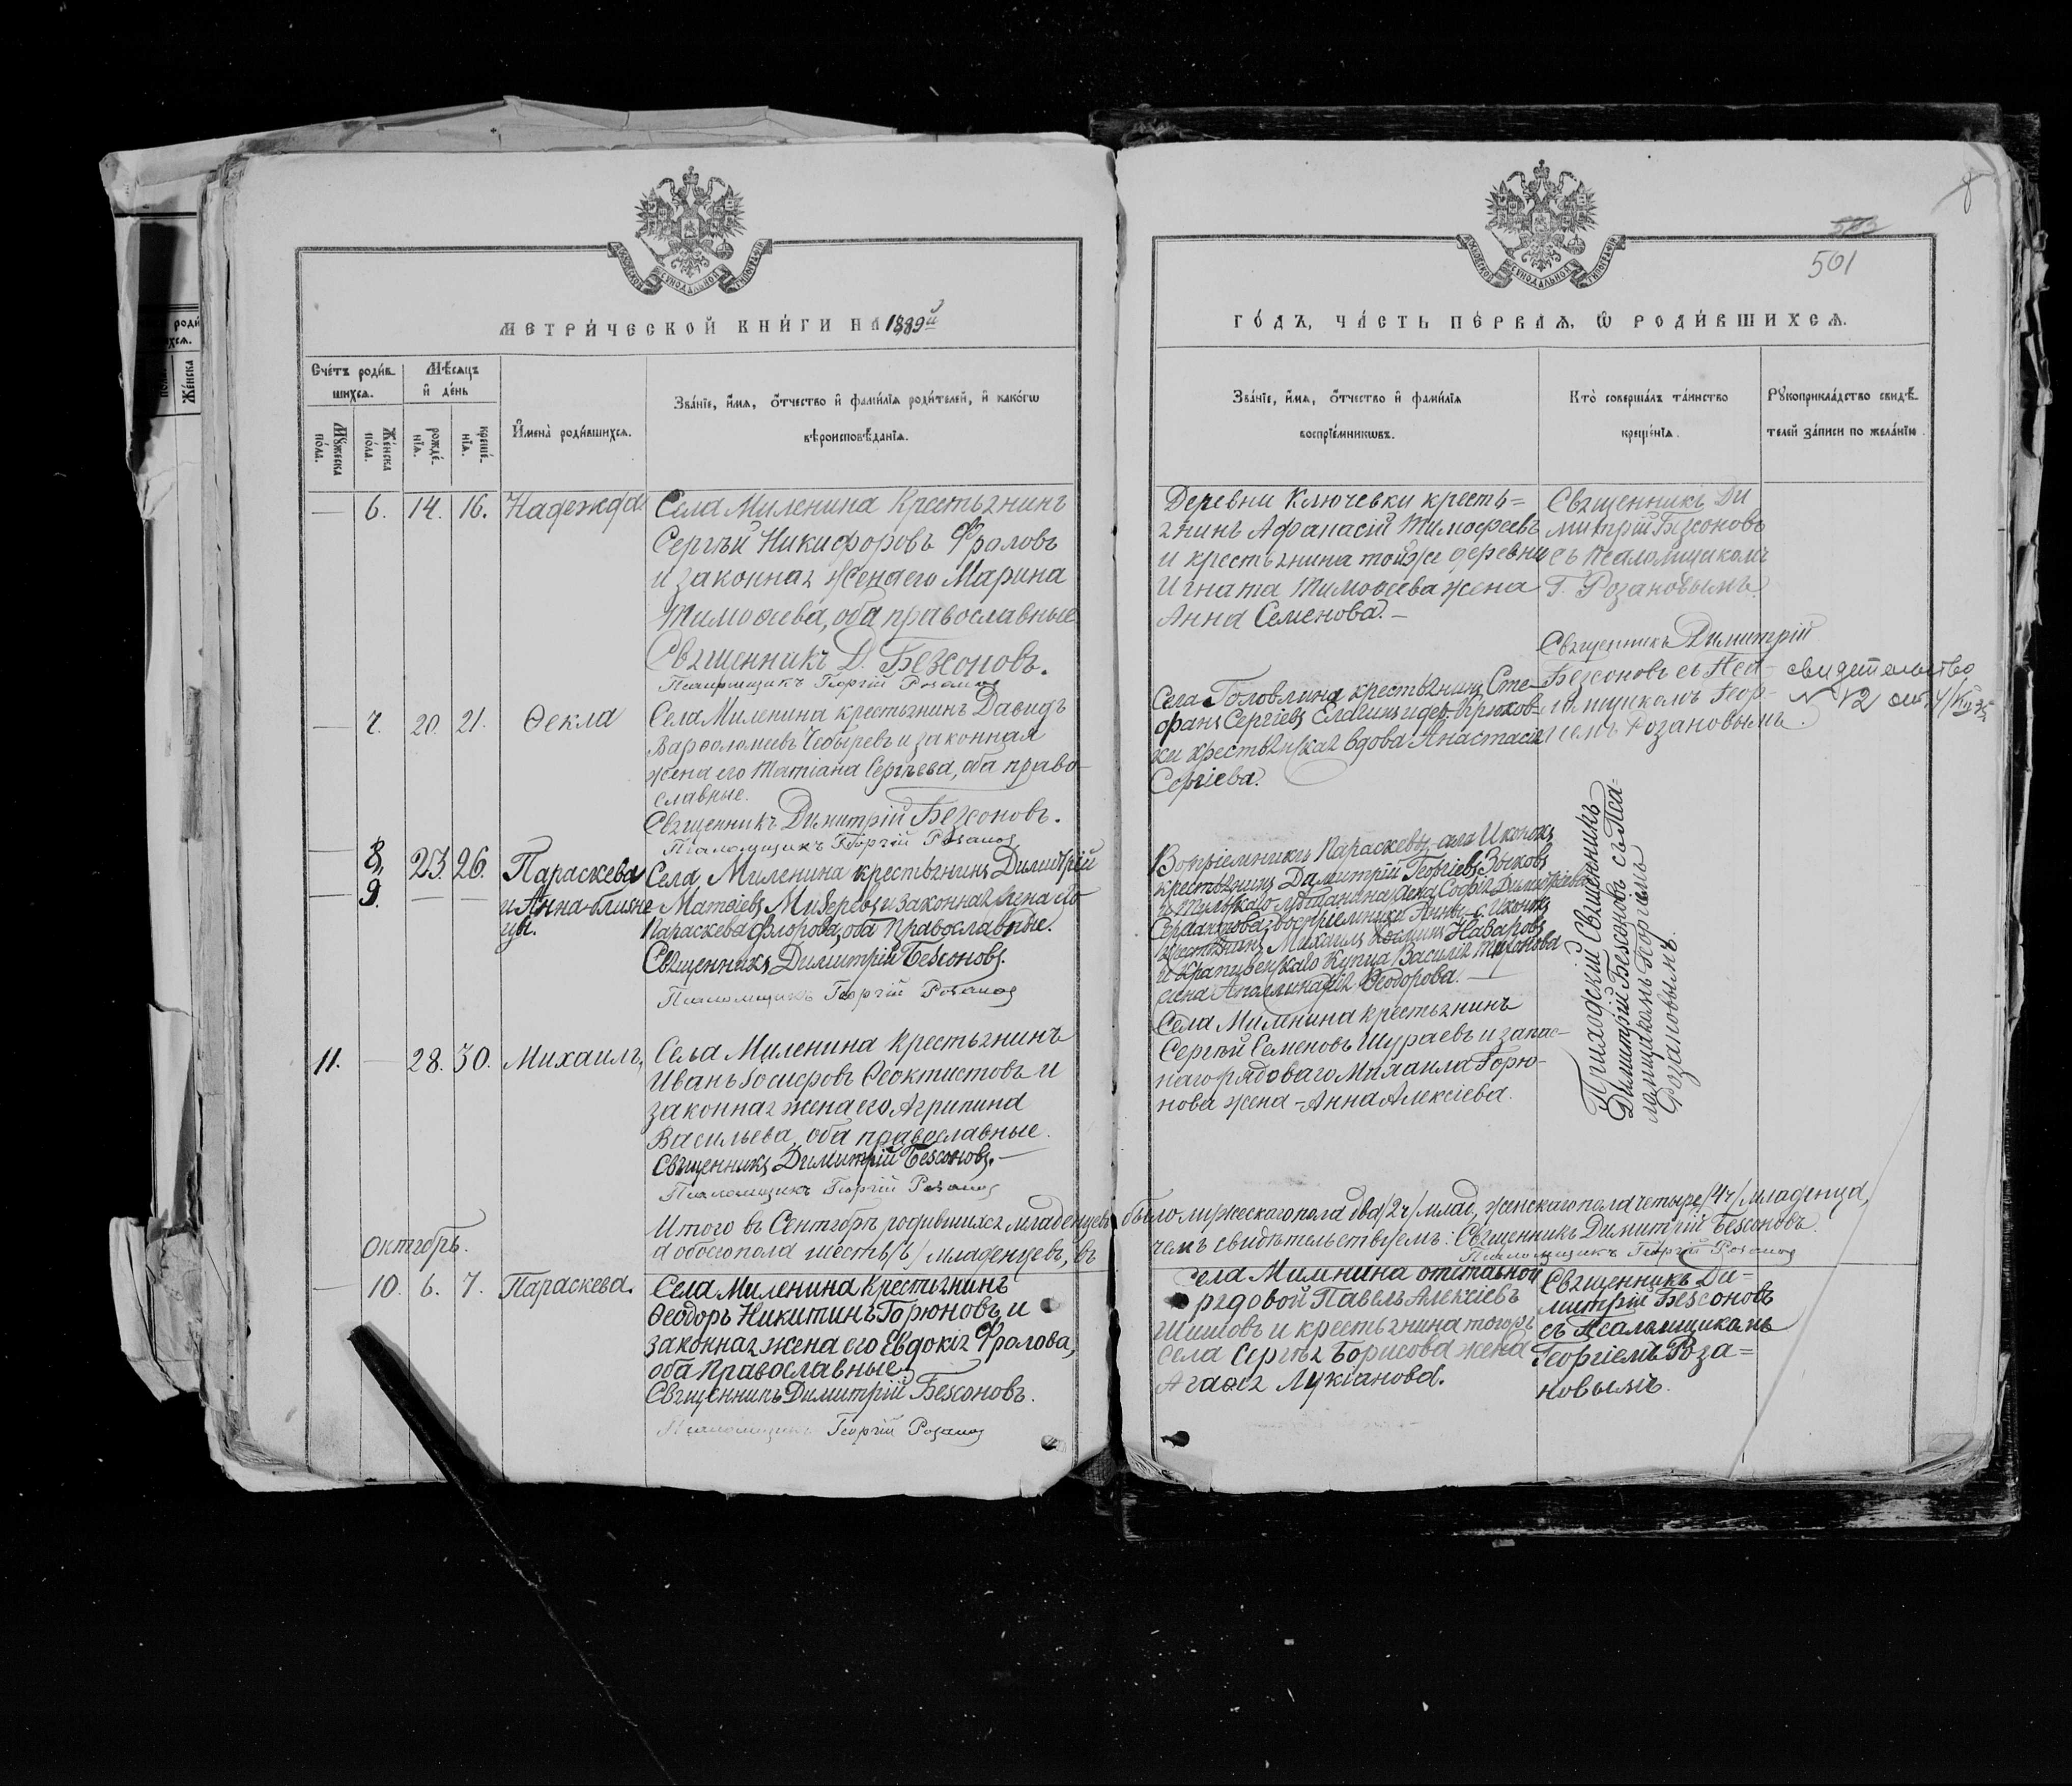 8
502
501
МЕТРИ́ЧЕСКОЙ КНИ́ГИ НА 1889й
ГО́ДЪ, ЧА́СТЬ ПЕ́РВАЯ, Ѽ РОДИ́ВШИХСЯ.
Сче́тъ роди́в
шихся.
Мѣ́сяцъ
и҆ де́нь
Мꙋ́жеска
по́ла.
Же́нска
по́ла.
рожде́-
нїя.
креще́-
нїя.
И҆мена̀ роди́вшихся.
Зва́нїе, и҆́мя, ѻ҆́тчество и҆ фами́лїя роди́телей, и҆ како́гѡ
вѣроисповѣ́данїя.
Зва́нїе, и҆́мя, ѻ҆́тчество и҆ фами́лїя
воспрїе́мникѡвъ.
Кто̀ соверша́лъ та́инство
креще́нїя.
Рꙋкоприкла́дство свидѣ́-
телей за́писи по жела́нїю.
— 6. 14. 16. Надежда
Села Миленина Крестьянинъ
Сергѣй Никифоровъ Фроловъ
и законная жена его Марина
Тимоѳеева, оба православные.
Священникъ Д. Безсоновъ.
Псаломщикъ Георгій Розановъ
Деревни Ключевки кресть=
янинъ Афанасій Тимофеевъ
и крестьянина тойже деревни
Игната Тимоѳеева жена
Анна Семенова. —
Священникъ Ди
митрій Безсоновъ
съ Псаломщикомъ
Г. Розановымъ.
— 7. 20. 21. Ѳекла
Села Миленина крестьянинъ Давидъ
Варѳоломеевъ Чебыревъ и законная
жена его Татіана Сергѣева, оба право-
славные.
Священникъ Димитрій Безсоновъ.
Псаломщикъ Георгій Розановъ
Села Головлина крестьянинъ Сте-
фанъ Сергіевъ Елагинъ и дер. Крюков-
ки крестьянская вдова Анастасія
Сергіева.
Священникъ Димитрій
Безсоновъ съ Пса-
ломщикомъ Геор-
гіемъ Розановымъ.
свидетельство
№ 12
— 8, 23. 26. Параскева
— 9. — — и Анна-близне
цы.
Села Миленина крестьянинъ Димитрій
Матѳіевъ Мизеревъ и законная жена его
Параскева Флорова, оба Православные.
Священникъ Димитрій Безсоновъ.
Псаломщикъ Георгій Розановъ
Вопріемники Параскевы, села Иконокъ
крестьянинъ Димитрій Георгіевъ Зыковъ
и Тульскаго мѣщанина жена Софія Димитріева
воспріемники Анны — с. Иконокъ
крестьянинъ Михаилъ Козминъ Назаровъ
и Крапивенскаго Купца Василія Тихонова
жена Апполинарія Ѳеодорова. —
Приходскій Священникъ
Димитрій Безсоновъ съ Пса-
ломщикомъ Георгіемъ
Розановымъ.
11. — 28. 30. Михаилъ,
Села Миленина Крестьянинъ
Иванъ Іосифовъ Ѳеоктистовъ и
законная жена его Агрипина
Васильева, оба православные.
Священникъ Димитрій Безсоновъ. —
Псаломщикъ Георгій Розановъ
Села Миленина крестьянинъ
Сергѣй Семеновъ Шураевъ и запас-
наго рядоваго Михаила Горю-
нова жена - Анна Алексіева.
Итого въ Сентябрѣ родившихся младенцевъ было мужескаго пола два /2ч/ млад, женскаго пола четыре /4ч/ младенца,
а обоего пола шесть /6/ младенцевъ, въ чемъ свидѣтельствуемъ: Священникъ Димитрій Безсоновъ.
Псаломщикъ Георгій Розановъ
Октябрь.
— 10. 6. 7. Параскева.
Села Миленина Крестьянинъ
Ѳеодоръ Никитинъ Горюновъ и
законная жена его Евдокія Фролова,
оба Православные
Священникъ Димитрій Безсоновъ.
Псаломщикъ Георгій Розановъ
Села Миленина отставной
рядовой Павелъ Алексіевъ
Шишовъ и крестьянина тогожъ
села Сергѣя Борисова жена
Агаѳія Лукіанова.
Священникъ Ди=
митрій Безсоновъ
съ Псаломщикомъ
Георгіемъ Роза=
новымъ.